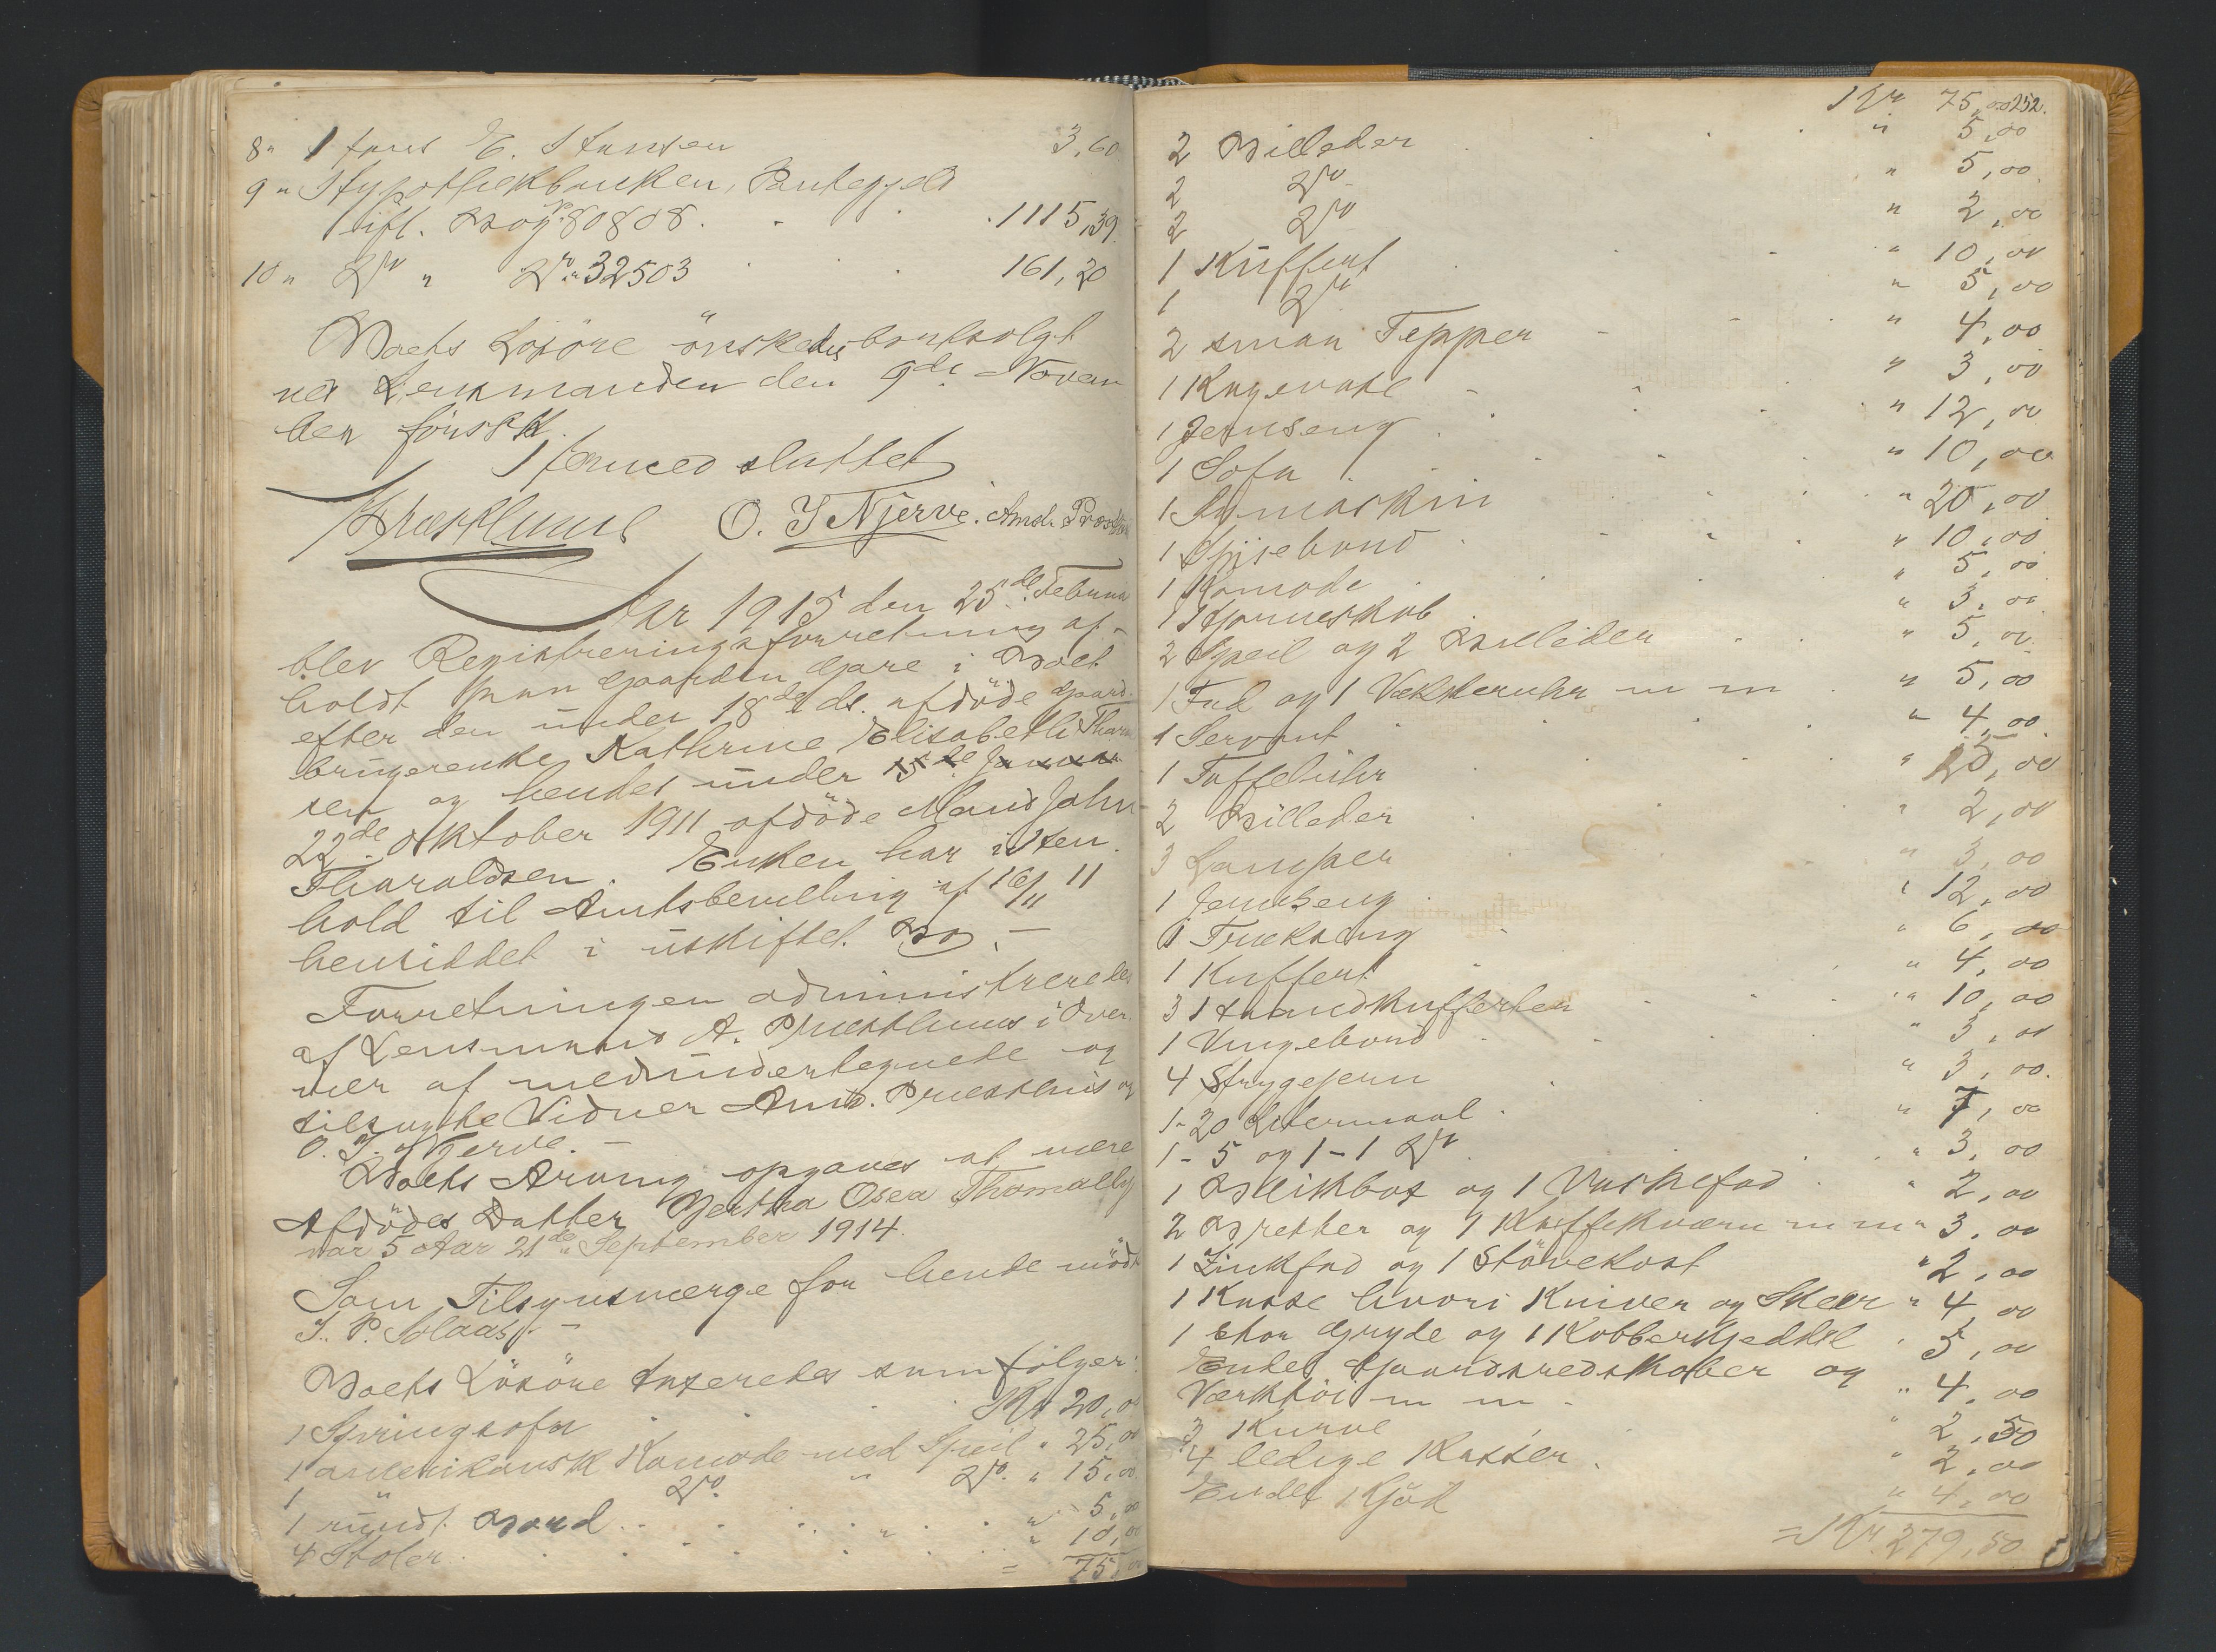 8" Hans E. Hansen 3,60
9 " Hypothekbanken, Pantegjeld
ifl. Bog No. 80808. 1115,39
10 " Do " Do. 32503 161,20
Boets Løsøre ønskedes bortsolgt
ved Lensmanden den 9de Novem
ber førstk.
Hermed sluttet
A Præsthuus O. J Njerve. Amd. Præsthus
Aar 1915 den 25de Februar
blev Registreringsforretning af-
holdt paa Gaarden Gare i Boet
efter den under 18de ds. afdøde Gaard
brugerenke Kathrine Elisabeth Thara
sen og hendes under 15de Januar
22de Oktober 1911 afdøde Mand John
Tharaldsen. Enken har i Hen
hold til Amtsbevilling af 16/11 11
hensiddet i uskiftet Bo. —
Forretningen administreredes
af Lensmand A. Præsthuus i Over
vær af medundertegnede og
tilsagte Vidner Amd. Præsthus og
O. J. Njerve. —
Boets Arving opgaves at være
Afdødes Datter Bertha Osea Thomally
var 5 Aar 21de September 1914.
Som Tilsynsværge for hende mødte
J. P. Solaas. —
Boets Løsøre taxeredes som følger:
1 Springsofa Kr 20,00
1 amerikansk Komode med Speil " 25,00
1 " Do. " Do. " 15,00
1 rundt Bord " 5,00
4 Stoler " 10,00
= 75,00
Kr 75,00 252.
2 Billeder " 5,00
2 Do " 5,00
2 Do " 2,00
1 Kuffert " 10,00
1 Do " 5,00
2 smaa Tepper " 4,00
1 Kagevase " 3,00
1 Jernseng " 12,00
1 Sofa " 10,00
1 Symaskin " 20,00
1 Spisebord " 10,00
1 Komode " 5,00
1 Hjørneskab " 3,00
2 Speil og 2 Billeder " 5,00
1 Fad og 1 Vækkeruhr m m " 5,00
1 Servant " 4,00
1 Taffeluhr " 15,00
2 Billeder " 2,00
3 Lamper " 3,00
1 Jernseng " 12,00
1 Trækseng " 6,00
1 Kuffert " 4,00
3 Haandkufferter " 10,00
1 Vingebord " 3,00
4 Strygejern " 3,00.
1- 20 Litermaal " 7,00
1- 5 og 1 - 1 Do " 3,00
1 Blikbox og 1 Vaskefad " 2,00
2 Bretter og 1 Kaffekværn m m " 3,00
1 Zinkfad og 1 Støvekost " 2,00
1 Kasse hvori Kniver og Skeer " 4,00
1 stor Gryde og 1 Kobberkjeddel " 5,00
Endel Gaardsredskaber og
Værktøi m m " 4,00
3 Kurve " 2,50
4 ledige Kasser " 2,00
Endel Kjød " 4,00
= Kr. 279,50